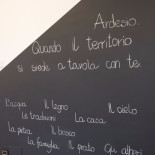 Ardesio.
Quando il territorio
si siede a tavola con te.
L'acqua Il legno Il cielo
Le tradizioni La casa
La pietra Il bosco
La famiglia Il prato Gli alberi